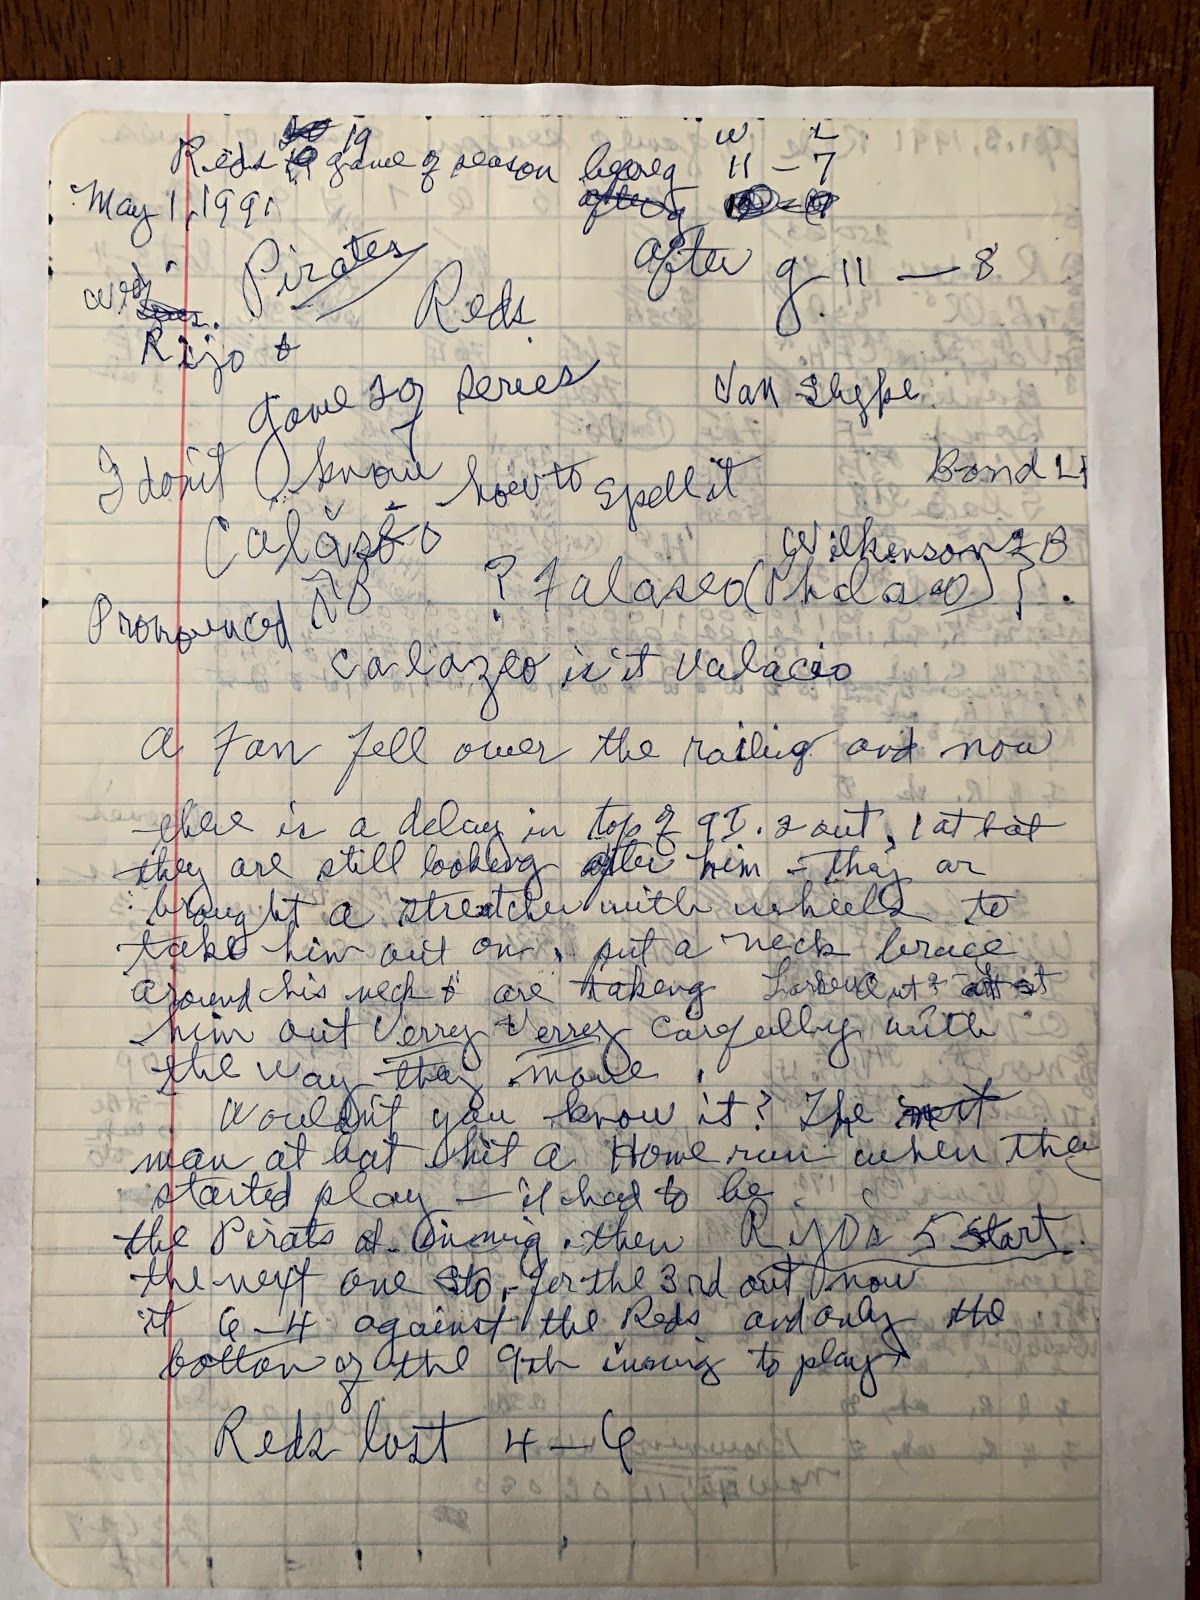 W L
19
Reds game of season before g 11 - 7
May 1, 1991
after g. 11 - 8
Pirates
Wed.
Reds
Rijo &
Game 2 of series
Van Slyke
I don't know how to spell it
Bond LF
Calazeo
Wilkenson 2B
? Falaseo
Pronounced
Calazeo is it Valacio
A Fan fell over the railig and now
there is a delay in top of 9 I. 2 out, 1 at bat
they are still looking after him - They ar
brought a stretcher with wheels to
take him out on, put a neck brace
around his neck & are takeng
him out Verrey Verrey carefully with
the way they move.
Wouldn't you know it? The next
man at bat hit a Home run when they
started play - it had to be
the Pirats at inning. then Rijo's 5 Start.
the next one for the 3rd out now
it 6-4 against the Reds and only the
botton of the 9th inning to play
Reds lost 4-6